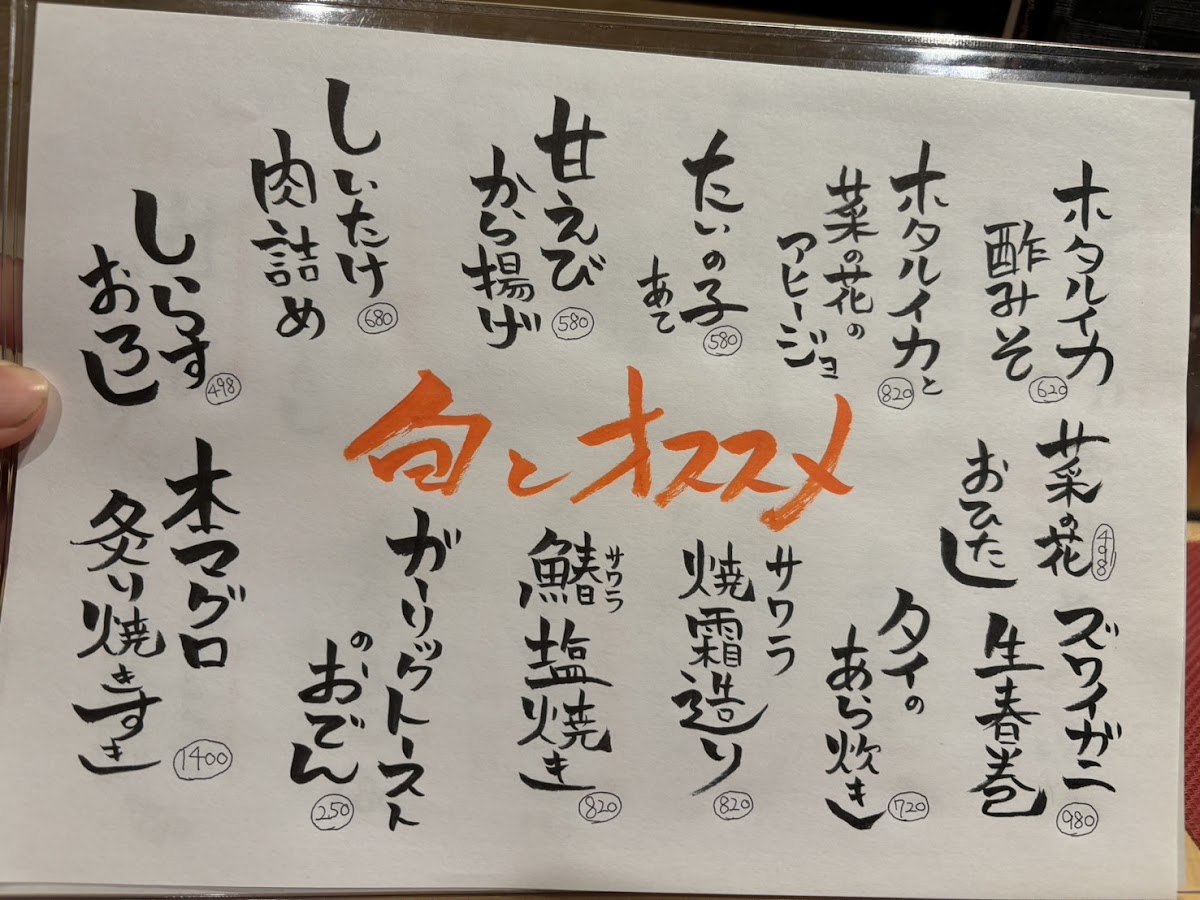 ホタルイカ
酢みそ
620
ホタルイカと
菜の花の
アヒージョ
820
たいの子
あて
580
甘えび
から揚げ
580
しいたけ
肉詰め
680
しらす
おろし
498
旬とオススメ
菜の花
おひたし
498
ズワイガニ
生春巻
980
タイの
あら炊き
720
サワラ
焼霜造り
820
サワラ
鰆塩焼き
820
ガーリックトースト
のおでん
250
本マグロ
炙り焼きすき
1400